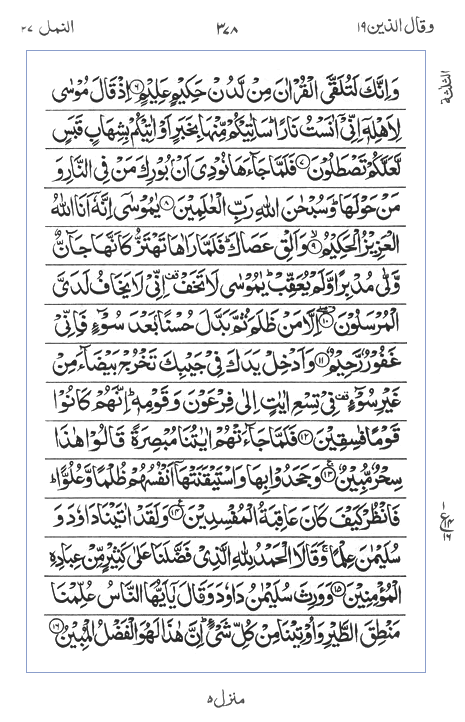 وقال الذين ١٩ ٣٧٨ النمل ٢٧
وَاِنَّكَ لَتُلَقَّى الْقُرْاٰنَ مِنْ لَّدُنْ حَكِيْمٍ عَلِيْمٍ ۝٦ اِذْ قَالَ مُوْسٰى
لِاَهْلِهٖۤ اِنِّىْۤ اٰنَسْتُ نَارًا ؕ سَاٰتِيْكُمْ مِّنْهَا بِخَبَرٍ اَوْ اٰتِيْكُمْ بِشِهَابٍ قَبَسٍ
لَّعَلَّكُمْ تَصْطَلُوْنَ ۝٧ فَلَمَّا جَآءَهَا نُوْدِىَ اَنْۢ بُوْرِكَ مَنْ فِى النَّارِ وَ
مَنْ حَوْلَهَا ؕ وَسُبْحٰنَ اللّٰهِ رَبِّ الْعٰلَمِيْنَ ۝٨ يٰمُوْسٰۤى اِنَّهٗۤ اَنَا اللّٰهُ
الْعَزِيْزُ الْحَكِيْمُ ۝٩ وَاَلْقِ عَصَاكَ ؕ فَلَمَّا رَاٰهَا تَهْتَزُّ كَاَنَّهَا جَآنٌّ
وَّلّٰى مُدْبِرًا وَّلَمْ يُعَقِّبْ ؕ يٰمُوْسٰى لَا تَخَفْ ۟ اِنِّىْ لَا يَخَافُ لَدَىَّ
الْمُرْسَلُوْنَ ۝١٠ اِلَّا مَنْ ظَلَمَ ثُمَّ بَدَّلَ حُسْنًۢا بَعْدَ سُوْٓءٍ فَاِنِّىْ
غَفُوْرٌ رَّحِيْمٌ ۝١١ وَاَدْخِلْ يَدَكَ فِىْ جَيْبِكَ تَخْرُجْ بَيْضَآءَ مِنْ
غَيْرِ سُوْٓءٍ ۟ فِىْ تِسْعِ اٰيٰتٍ اِلٰى فِرْعَوْنَ وَقَوْمِهٖ ؕ اِنَّهُمْ كَانُوْا
قَوْمًا فٰسِقِيْنَ ۝١٢ فَلَمَّا جَآءَتْهُمْ اٰيٰتُنَا مُبْصِرَةً قَالُوْا هٰذَا
سِحْرٌ مُّبِيْنٌ ۝١٣ وَجَحَدُوْا بِهَا وَاسْتَيْقَنَتْهَاۤ اَنْفُسُهُمْ ظُلْمًا وَّعُلُوًّا ؕ
فَانْظُرْ كَيْفَ كَانَ عَاقِبَةُ الْمُفْسِدِيْنَ ۝١٤ وَلَقَدْ اٰتَيْنَا دَاوٗدَ وَ
سُلَيْمٰنَ عِلْمًا ۚ وَقَالَا الْحَمْدُ لِلّٰهِ الَّذِىْ فَضَّلَنَا عَلٰى كَثِيْرٍ مِّنْ عِبَادِهِ
الْمُؤْمِنِيْنَ ۝١٥ وَوَرِثَ سُلَيْمٰنُ دَاوٗدَ وَقَالَ يٰۤاَيُّهَا النَّاسُ عُلِّمْنَا
مَنْطِقَ الطَّيْرِ وَاُوْتِيْنَا مِنْ كُلِّ شَىْءٍ ؕ اِنَّ هٰذَا لَهُوَ الْفَضْلُ الْمُبِيْنُ ۝١٦
الثلثة
١
ع
١٤
١٦
منزل ٥